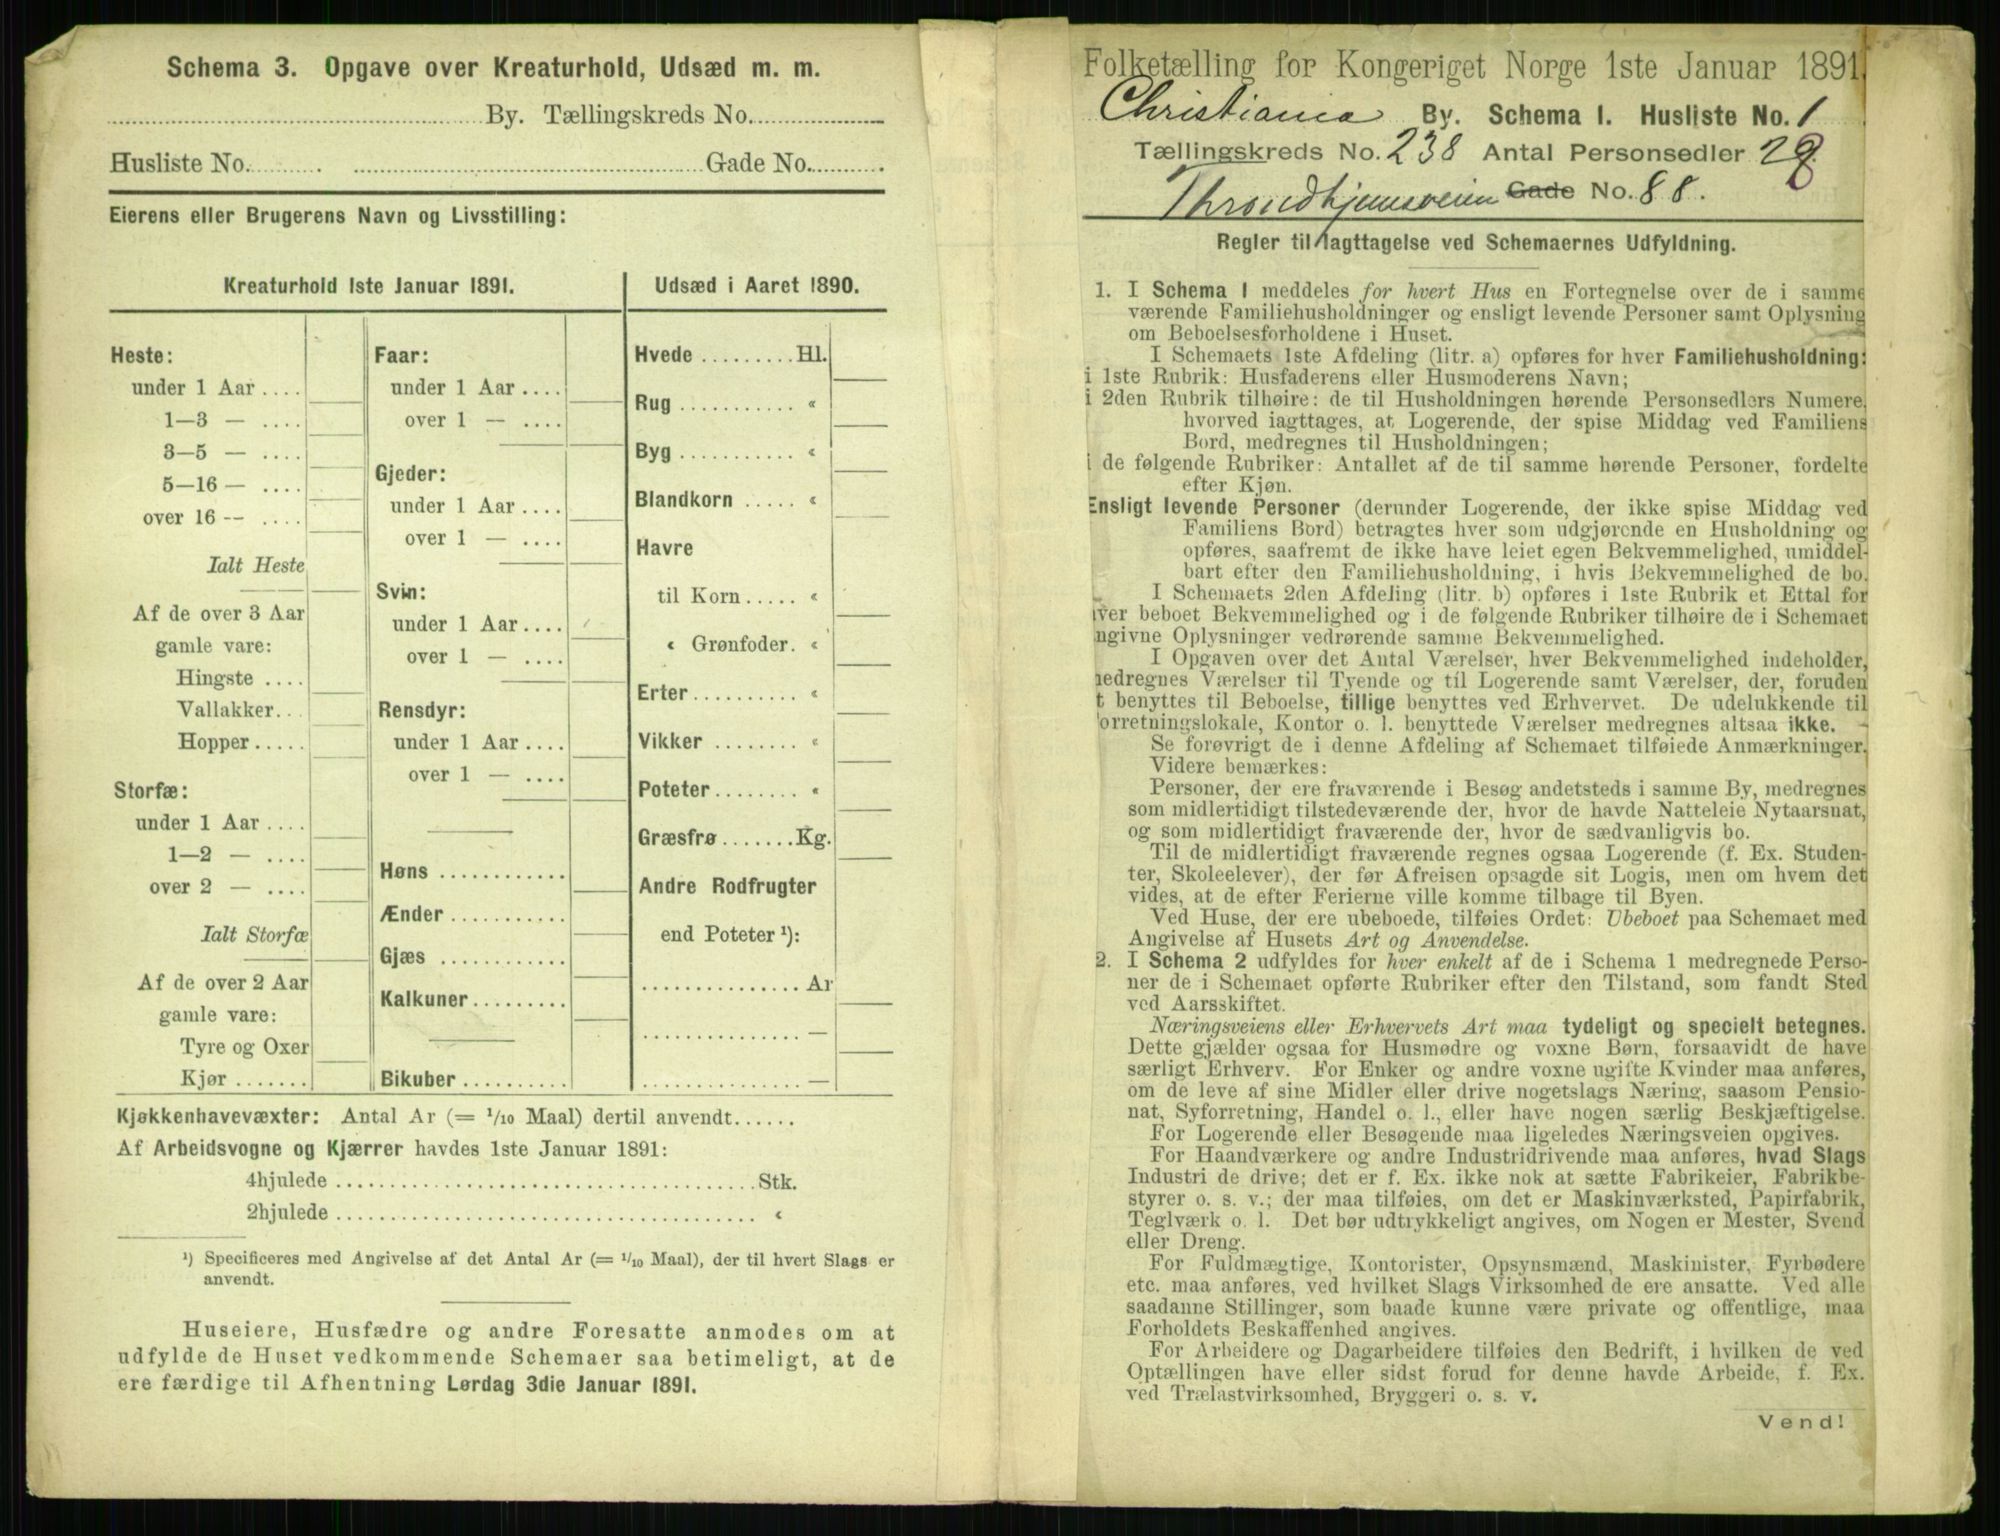 Schema 3. Opgave over Kreaturhold, Udsæd m. m.
By. Tællingskreds No.
Husliste No. Gade No.
Eierens eller Brugerens Navn og Livsstilling:
Kreaturhold 1ste Januar 1891.
Heste:
under 1 Aar ....
1—3 — ....
3—5 — ....
5—16 — ....
over 16 -- ....
Ialt Heste
Af de over 3 Aar
gamle vare:
Hingste ....
Vallakker...
Hopper .....
Storfæ:
under 1 Aar ....
1—2 — ....
over 2 — ....
Ialt Storfæ
Af de over 2 Aar
gamle vare:
Tyre og Oxer
Kjør .......
Faar:
under 1 Aar ....
over 1 — ....
Gjeder:
under 1 Aar ....
over 1 — ....
Svin:
under 1 Aar ....
over 1 — ....
Rensdyr:
under 1 Aar ....
over 1 — ....
Høns ............
Ænder ...........
Gjæs ............
Kalkuner .........
Bikuber ..........
Udsæd i Aaret 1890.
Hvede ......... Hl.
Rug ........... «
Byg ........... «
Blandkorn ..... «
Havre
til Korn ..... «
« Grønfoder. «
Erter .......... «
Vikker ........ «
Poteter ........ «
Græsfrø ....... Kg.
Andre Rodfrugter
end Poteter ¹):
............... Ar
............... —
............... —
Kjøkkenhavevæxter: Antal Ar (= 1/10 Maal) dertil anvendt......
Af Arbeidsvogne og Kjærrer havdes 1ste Januar 1891:
4hjulede ....................................... Stk.
2hjulede ....................................... «
¹) Specificeres med Angivelse af det Antal Ar (= 1/10 Maal), der til hvert Slags er
anvendt.
Huseiere, Husfædre og andre Foresatte anmodes om at
udfylde de Huset vedkommende Schemaer saa betimeligt, at de
ere færdige til Afhentning Lørdag 3die Januar 1891.
Folketælling for Kongeriget Norge 1ste Januar 1891.
Christiania By. Schema I. Husliste No. 1
Tællingskreds No. 238 Antal Personsedler 28
Throndhjemsveien Gade No. 88.
Regler til Iagttagelse ved Schemaernes Udfyldning.
1. I Schema 1 meddeles for hvert Hus en Fortegnelse over de i samme
værende Familiehusholdninger og ensligt levende Personer samt Oplysning
om Beboelsesforholdene i Huset.
I Schemaets 1ste Afdeling (litr. a) opføres for hver Familiehusholdning:
i 1ste Rubrik: Husfaderens eller Husmoderens Navn;
i 2den Rubrik tilhøire: de til Husholdningen hørende Personsedlers Numere,
hvorved iagttages, at Logerende, der spise Middag ved Familiens
Bord, medregnes til Husholdningen;
i de følgende Rubriker: Antallet af de til samme hørende Personer, fordelte
efter Kjøn.
Ensligt levende Personer (derunder Logerende, der ikke spise Middag ved
Familiens Bord) betragtes hver som udgjørende en Husholdning og
opføres, saafremt de ikke have leiet egen Bekvemmelighed, umiddel-
bart efter den Familiehusholdning, i hvis Bekvemmelighed de bo.
I Schemaets 2den Afdeling (litr. b) opføres i 1ste Rubrik et Ettal for
ver beboet Bekvemmelighed og i de følgende Rubriker tilhøire de i Schemaet
ngivne Oplysninger vedrørende samme Bekvemmelighed.
I Opgaven over det Antal Værelser, hver Bekvemmelighed indeholder,
nedregnes Værelser til Tyende og til Logerende samt Værelser, der, foruden
t benyttes til Beboelse, tillige benyttes ved Erhvervet. De udelukkende til
orretningslokale, Kontor o. l. benyttede Værelser medregnes altsaa ikke.
Se forøvrigt de i denne Afdeling af Schemaet tilføiede Anmærkninger.
Videre bemærkes:
Personer, der ere fraværende i Besøg andetsteds i samme By, medregnes
som midlertidigt tilstedeværende der, hvor de havde Natteleie Nytaarsnat,
og som midlertidigt fraværende der, hvor de sædvanligvis bo.
Til de midlertidigt fraværende regnes ogsaa Logerende (f. Ex. Studen-
ter, Skoleelever), der før Afreisen opsagde sit Logis, men om hvem det
vides, at de efter Ferierne ville komme tilbage til Byen.
Ved Huse, der ere ubeboede, tilføies Ordet: Ubeboet paa Schemaet med
Angivelse af Husets Art og Anvendelse.
2. I Schema 2 udfyldes for hver enkelt af de i Schema 1 medregnede Perso-
ner de i Schemaet opførte Rubriker efter den Tilstand, som fandt Sted
ved Aarsskiftet.
Næringsveiens eller Erhvervets Art maa tydeligt og specielt betegnes.
Dette gjælder ogsaa for Husmødre og voxne Børn, forsaavidt de have
særligt Erhverv. For Enker og andre voxne ugifte Kvinder maa anføres,
om de leve af sine Midler eller drive nogetslags Næring, saasom Pensio-
nat, Syforretning, Handel o. l., eller have nogen særlig Beskjæftigelse.
For Logerende eller Besøgende maa ligeledes Næringsveien opgives.
For Haandværkere og andre Industridrivende maa anføres, hvad Slags
Industri de drive; det er f. Ex. ikke nok at sætte Fabrikeier, Fabrikbe-
styrer o. s. v.; der maa tilføies, om det er Maskinværksted, Papirfabrik,
Teglværk o. l. Det bør udtrykkeligt angives, om Nogen er Mester, Svend
eller Dreng.
For Fuldmægtige, Kontorister, Opsynsmænd, Maskinister, Fyrbødere
etc. maa anføres, ved hvilket Slags Virksomhed de ere ansatte. Ved alle
saadanne Stillinger, som baade kunne være private og offentlige, maa
Forholdets Beskaffenhed angives.
For Arbeidere og Dagarbeidere tilføies den Bedrift, i hvilken de ved
Optællingen have eller sidst forud for denne havde Arbeide, f. Ex.
ved Trælastvirksomhed, Bryggeri o. s. v.
Vend!